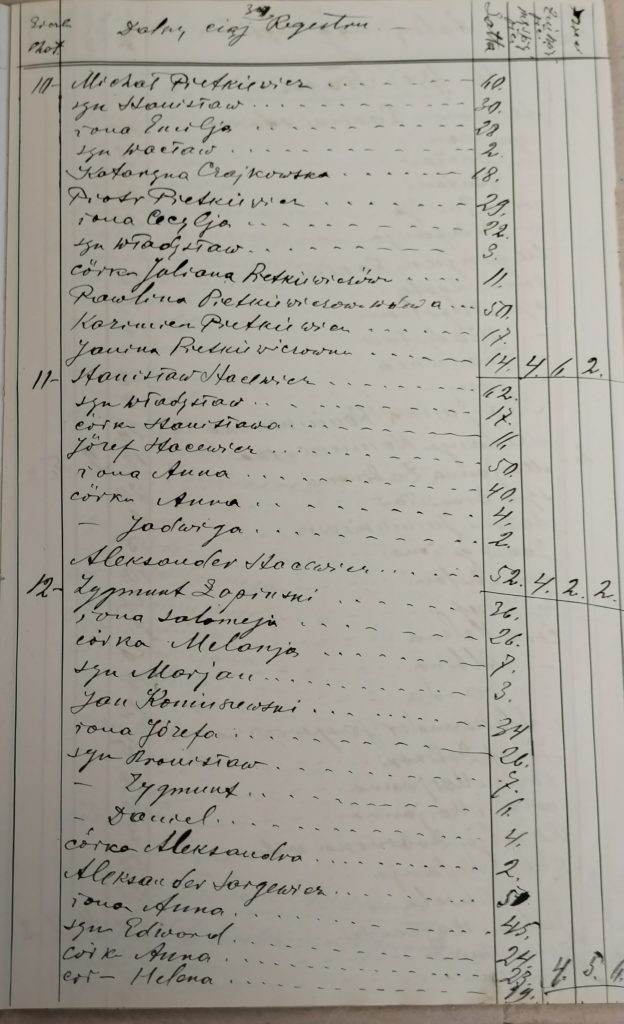 Dalszy ciąg Regestru
Latta
10- Michał Pietkiewicz 60.
syn Stanisław 30.
żona Emilja 28
syn Wacław 2.
Katarzyna Czajkowska 18.
Piotr Pietkiewicz 29.
żona Cecylja 22.
syn Władysław 3.
córka Juliana Pietkiewiczów 11.
Pawlina Pietkiewiczowa wdowa 50.
Kazimierz Pietkiewicz 17.
Janina Pietkiewiczowna 14. 4. 6. 2.
11- Stanisław Stacewicz 62.
syn Władysław 17.
córka Stanisława
Józef Stacewicz 50.
żona Anna 40.
córka Anna 4.
– Jadwiga 2.
Aleksander Stacewicz 52. 4. 2. 2.
12- Zygmunt Łapinski 36.
żona Salomeja 26.
córka Melanja 7.
syn Marjan 3.
Jan Koniuszewski 34
żona Józefa 26.
syn Bronisław 7.
– Zygmunt 6.
– Daniel 4.
córka Aleksandra 2.
Aleksander Jargewicz
żona Anna 45.
syn Edward 24.
córka Anna
cór– Helena 19. 4. 5. 6.